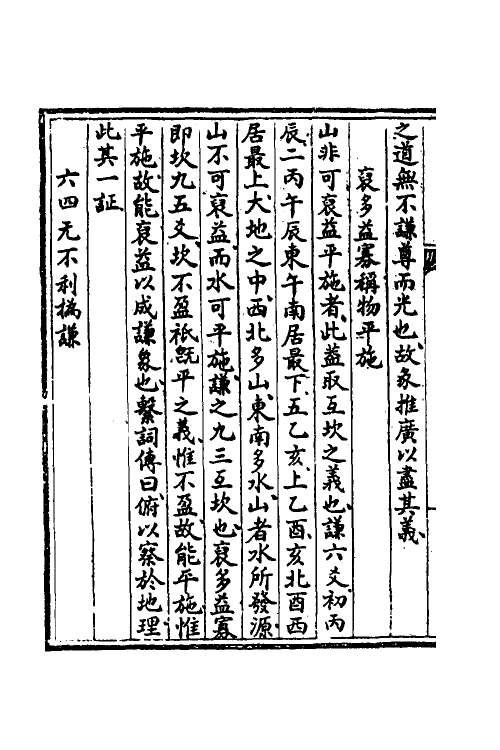 之道無不謙尊而光也故彖推廣以盡其義
裒多益寡稱物平施
山非可裒益平施者此益取互坎之義也謙六爻初丙
辰二丙午辰東午南居最下五乙亥上乙酉亥北酉西
居最上大地之中西北多山東南多水山者水所發源
山不可裒益而水可平施謙之九三互坎也裒多益寡
即坎九五爻坎不盈祇旣平之義惟不盈故能平施惟
平施故能裒益以成謙象也繫詞傳曰俯以察於地理
此其一証
六四无不利撝謙